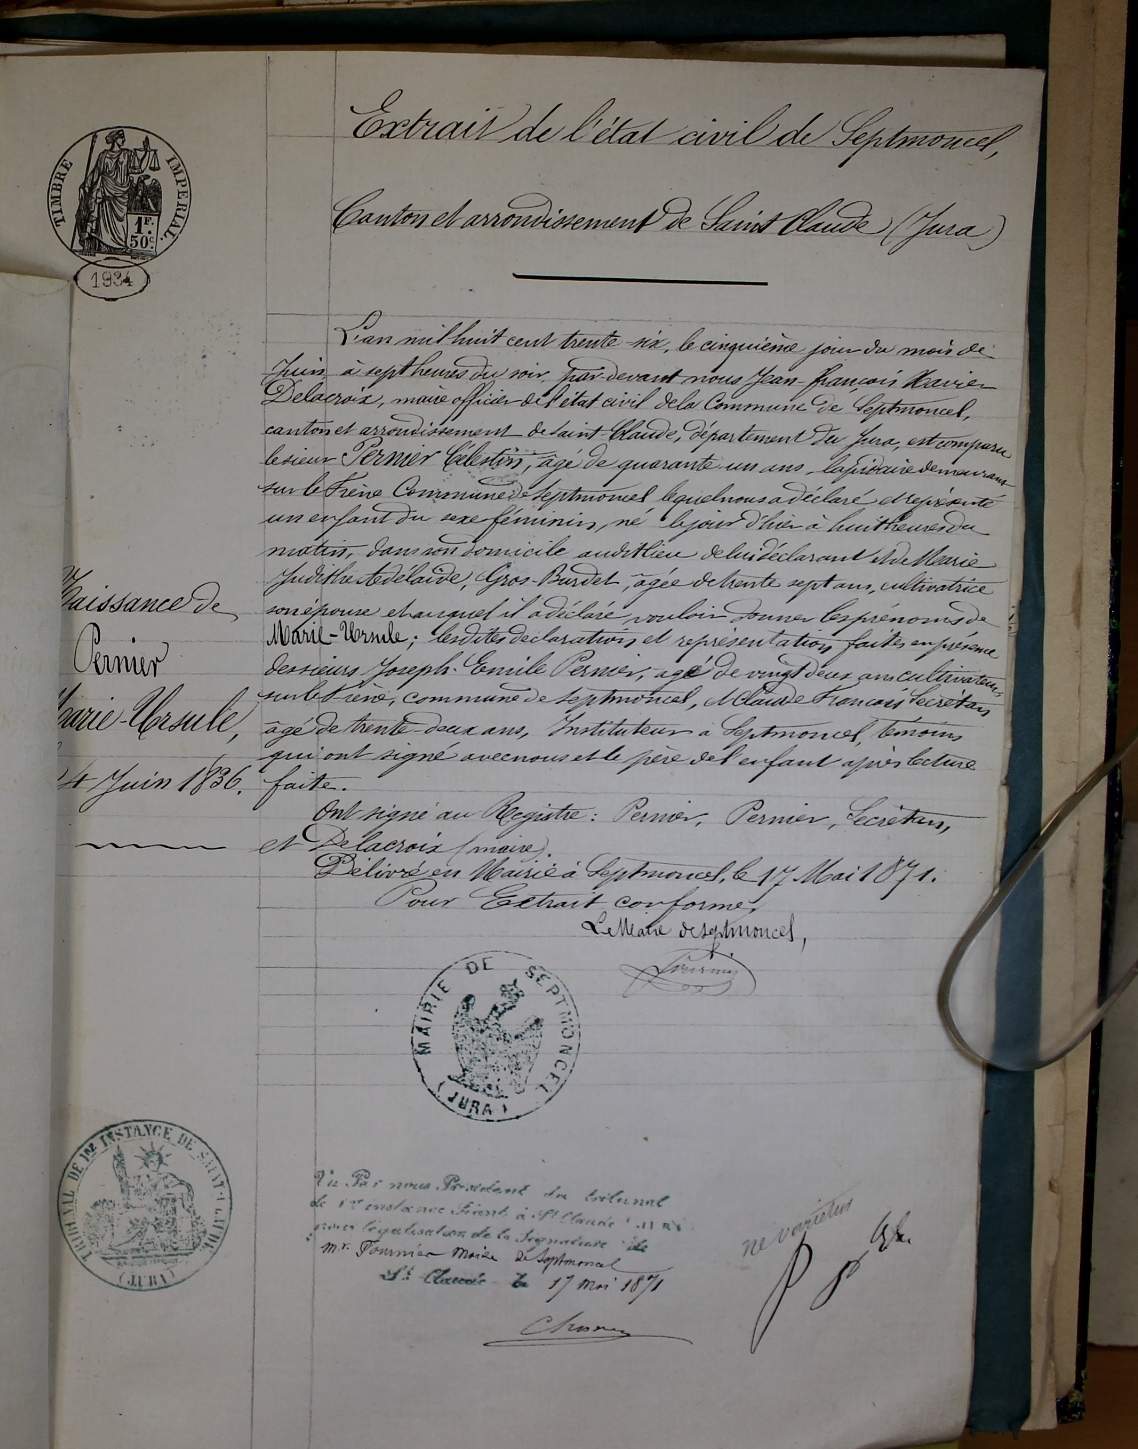 Extrait de l'état civil de Septmoncel,
Canton et arrondissement de Saint Claude (Jura)
TIMBRE IMPERIAL.
1F.
50c.
1934
L'an mil huit cent trente-six, le cinquième jour du mois de
Juin, à sept heures du soir, par devant nous Jean-François Xavier
Delacroix, maire officier de l'état civil de la Commune de Septmoncel,
canton et arrondissement de Saint-Claude, département du Jura, est comparu
le sieur Pernier Célestin, âgé de quarante-un ans, lapidaire demeurant
sur le Frène Commune de Septmoncel lequel nous a déclaré et représenté
un enfant du sexe féminin, né le jour d'hier à huit heures du
matin, dans son domicile audit lieu de lui déclarant et de Marie
Judithe Adélaïde, Gros-Burdet, âgée de trente sept ans, cultivatrice
son épouse et auquel il a déclaré vouloir donner les prénoms de
Marie-Ursule; lesdites déclaration et représentation faites en présence
des sieurs Joseph-Emile Pernier, agé de vingt deux ans cultivateur
sur le Frène, commune de Septmoncel, et Claude François Secrétan
âgé de trente-deux ans, Instituteur à Septmoncel, témoins
qui ont signé avec nous et le père de l'enfant après lecture
faite.
Naissance de
Pernier
Marie-Ursule,
4 Juin 1836.
Ont signé au Registre: Pernier, Pernier, Secrétan,
et Delacroix (maire).
Délivré en Mairie à Septmoncel, le 17 Mai 1871.
Pour Extrait conforme,
Le Maire de Septmoncel,
Fournier
MAIRIE DE SEPTMONCEL
(JURA)
TRIBUNAL DE 1re INSTANCE DE SAINT-CLAUDE
(JURA)
Vu Par nous Président du tribunal
de 1re instance séant à St Claude JURA
pour légalisation de la Signature de
mr. Fournier Maire de Septmoncel
St Claude le 17 mai 1871
ne varietur